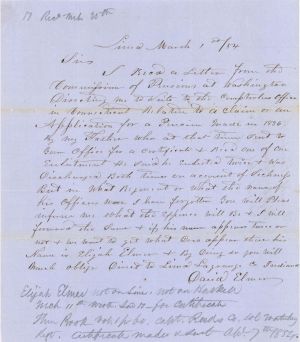 Lima March 1st /54
Sir
I Recd a Letter from the
Commissioner of Pensions at Washington
Directing me to Write to the Comptrolers Office
in Connecticut Relation to a Claim or an
Application for a Pension made in 1836
by my Father who at that time Sent to
Your Office for a Certificate & Recd one of one
Enlistment He Said he Enlisted twice & was
Discharged Both times on account of Sickness
But in What Regiment or What the name of
his Officers were I have forgotten You will Please
inform me What the Expence will Be & I will
forward the Same & if his name appears twice or
not & we want to get what Ever appears there his
Name is Elijah Elmer & By Doing so you will
Much oblige Direct to Lima Lagrange Co Indiana
David Elmer
Elijah Elmer not on Line not on Haskell
for Certificate
Capt.
Certificate made & sent Apl 7th 1854